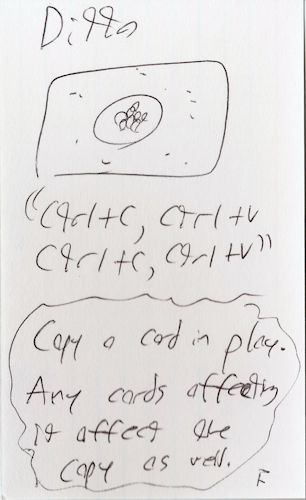 Ditto
"Ctrl+C, Ctrl+V
Ctrl+C, Ctrl+V"
Copy a card in play.
Any cards affecting
it affect the
copy as well.
F